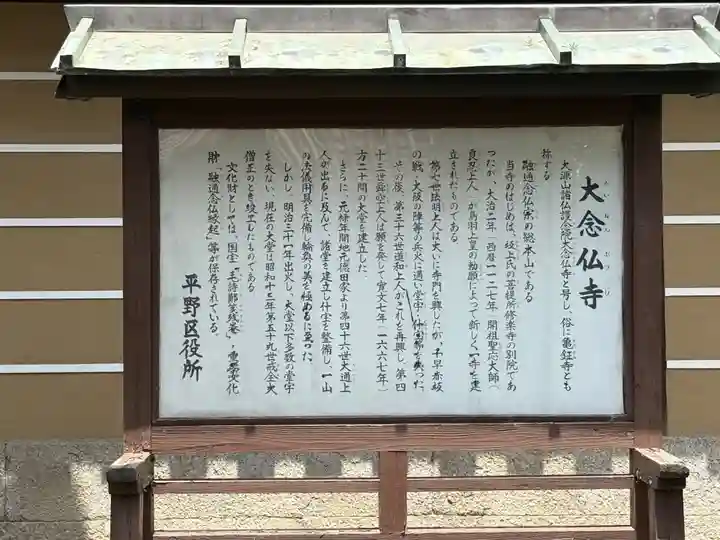 大念仏寺
だいねんぶつじ
大源山諸仏護念院大念仏寺と号し、俗に亀鉦寺とも
称する
融通念仏宗の総本山である
当寺のはじめは、坂上氏の菩提所修楽寺の別院であ
ったが、大治二年(西暦一一二七年)開祖聖応大師(
良忍上人)が鳥羽上皇の勅願によって新しく一寺を建
立されたものである
第七世法明上人は大いに寺門を興したが、千早赤坂
の戦、大阪の陣等の兵火に遭い堂宇・什宝等を失った
その後、第三十六世道和上人がこれを再興し、第四
十三世舜空上人は願を発して寛文七年(一六六七年)
方二十間の大堂を建立した
さらに、元禄年間地元徳田家より第四十六世大通上
人が出るに及んで、諸堂を建立し什宝を整備し、一山
の法儀財具を完備し輪奐の美を極めるに至った
しかし、明治三十一年出火し、大堂以下多数の堂宇
を失ない、現在の大堂は昭和十三年第五十九世戒全大
僧正のとき竣工したものである
文化財としては、国宝「毛詩鄭箋残巻」、重要文化
財「融通念仏縁起」等が保存されている。
平野区役所